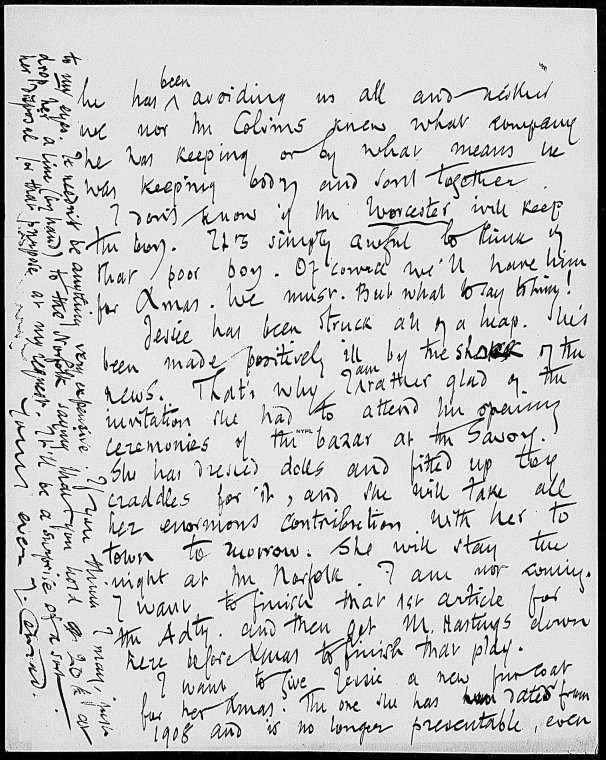 he has been avoiding us all and neither
we nor Mr Colvins knew what company
he was keeping or by what means he
was keeping body and soul together.
I don't know if the Worcester will keep
the boy. It's simply awful to think of
that poor boy. Of course we'll have him
for Xmas. We must. But what to say to him!
Jessie has been struck all of a heap. She's
been made positively ill by the shock of the
news. That's why I am rather glad of the
invitation she had to attend the opening
ceremonies of the bazar at the Savoy.
NYPL
She has dressed dolls and fitted up toy
craddles for it, and she will take all
her enormous contribution with her to
town to morrow. She will stay the
night at the Norfolk. I am not coming.
I want to finish that 1st article for
the Adty and then get M. Hastings down
here before Xmas to finish that play.
I want to give Jessie a new fur coat
for her Xmas. The one she has dated from
1908 and is no longer presentable, even
to my eyes. It needn't be anything very expensive. If you think I may, just
drop her a line (by hand) to the Norfolk saying that you hold £20 at
her disposal for that purpose at my request. It'll be a surprise of a sort.
Yours ever J. Conrad.